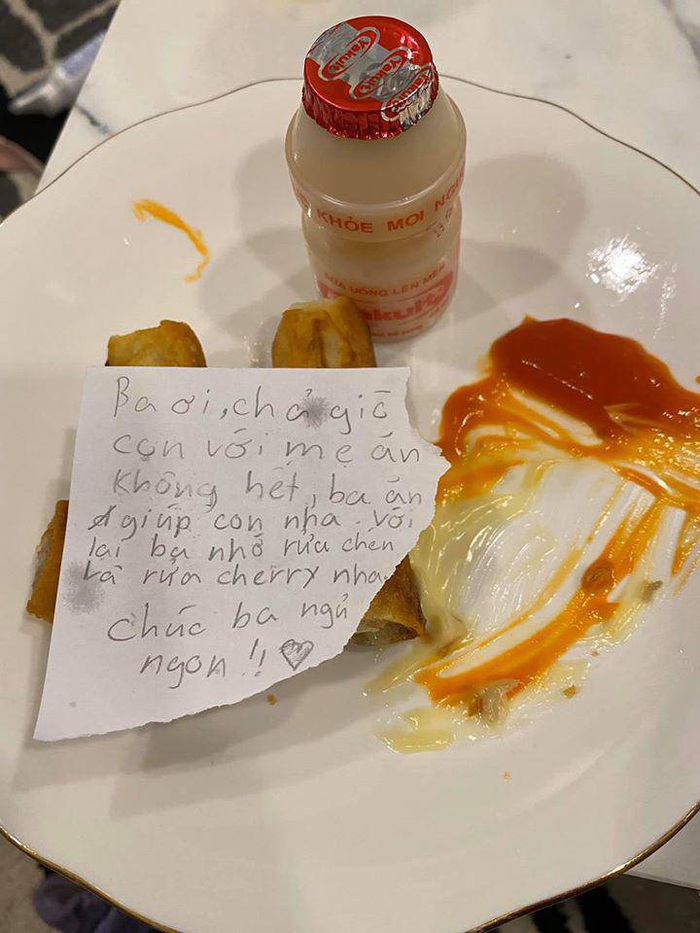 Yakult
Yakult
KHỎE MỌI
SỮA UỐNG LÊN MEN
Yakult
Ba ơi, chả giò
con với mẹ ăn
không hết, ba ăn
giúp con nha. Với
lại ba nhớ rửa chén
và rửa cherry nha.
chúc ba ngủ
ngon !! ♡